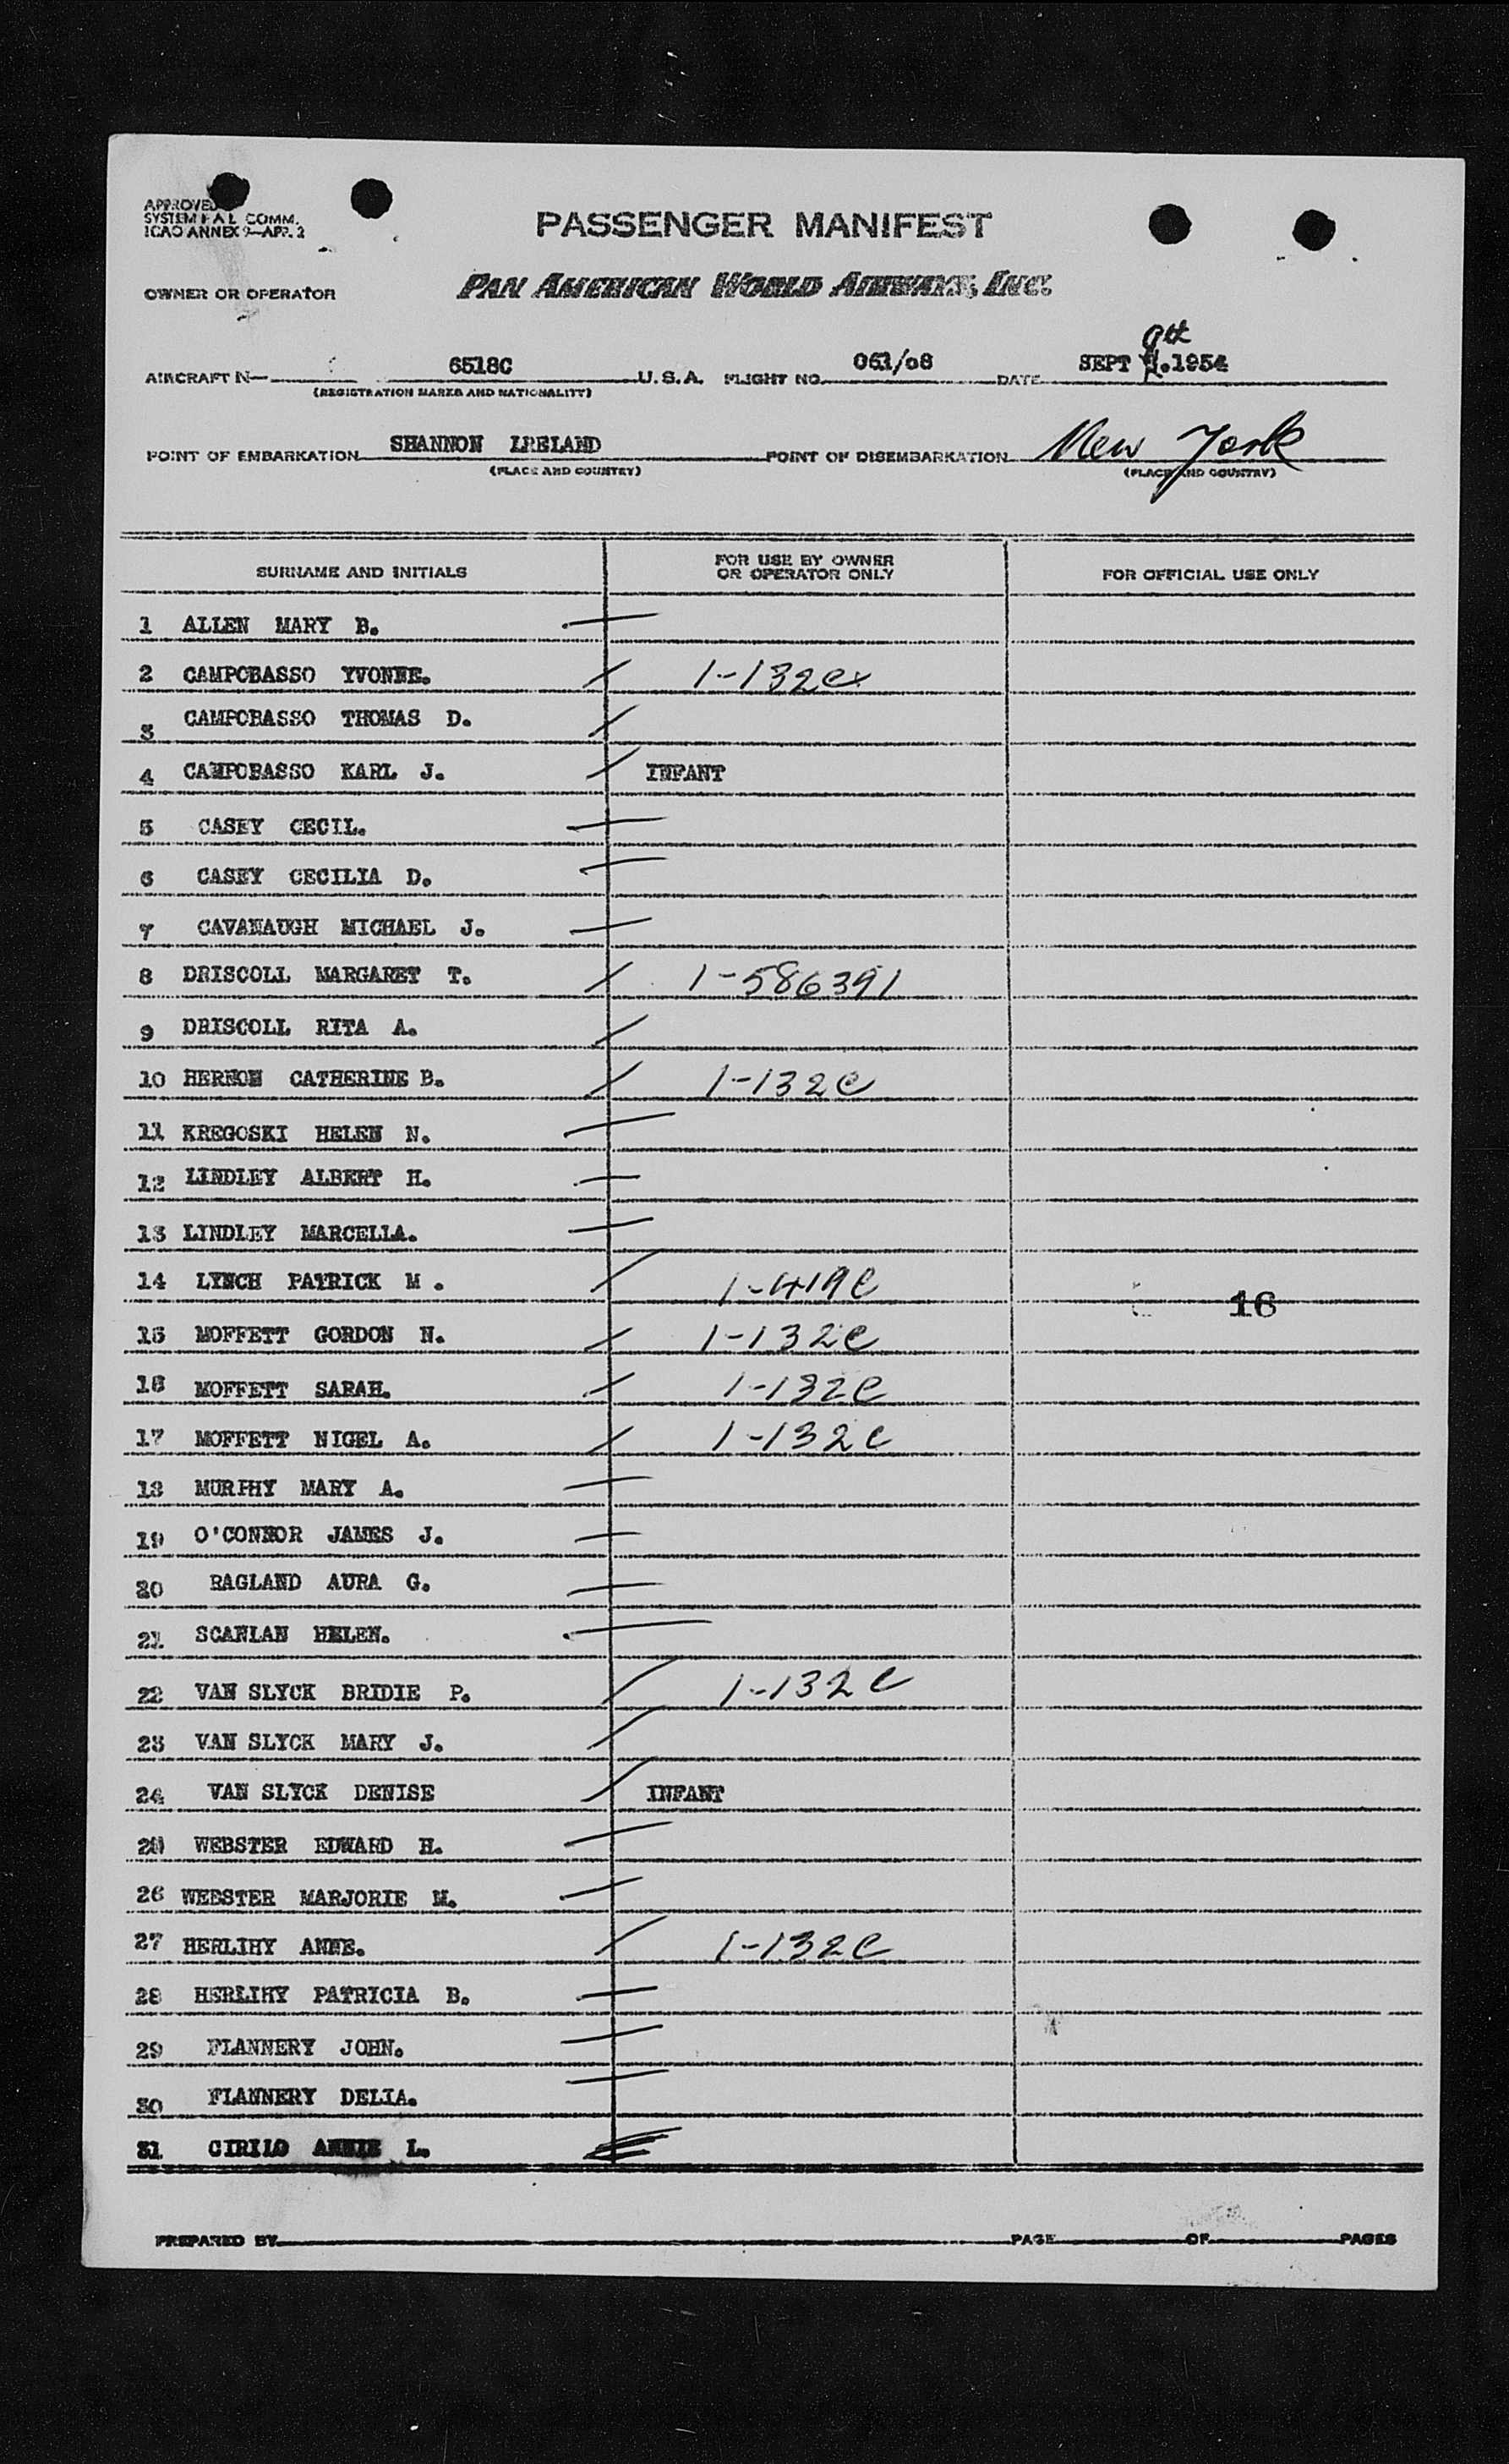 APPROVED
SYSTEM F A L COMM.
ICAO ANNEX 9-APP. 2
PASSENGER MANIFEST
OWNER OR OPERATOR PAN AMERICAN WORLD AIRWAYS, INC.
9th
AIRCRAFT N— 6518C U. S. A. FLIGHT NO. 061/08 DATE SEPT .1954
(REGISTRATION MARKS AND NATIONALITY)
POINT OF EMBARKATION SHANNON IRELAND POINT OF DISEMBARKATION New York
(PLACE AND COUNTRY) (PLACE AND COUNTRY)
SURNAME AND INITIALS FOR USE BY OWNER OR OPERATOR ONLY FOR OFFICIAL USE ONLY
1 ALLEN MARY B.
2 CAMPOBASSO YVONNE. 1-132ex
3 CAMPOBASSO THOMAS D.
4 CAMPOBASSO KARL J. INFANT
5 CASEY CECIL.
6 CASEY CECILIA D.
7 CAVANAUGH MICHAEL J.
8 DRISCOLL MARGARET T. 1-586391
9 DRISCOLL RITA A.
10 HERNON CATHERINE B. 1-132C
11 KREGOSKI HELEN N.
12 LINDLEY ALBERT H.
13 LINDLEY MARCELLA.
14 LYNCH PATRICK M . 1-419C
16
15 MOFFETT GORDON N. 1-132C
16 MOFFETT SARAH. 1-132C
17 MOFFETT NIGEL A. 1-132C
18 MURPHY MARY A.
19 O'CONNOR JAMES J.
20 RAGLAND AURA G.
21 SCANLAN HELEN.
22 VAN SLYCK BRIDIE P. 1-132C
23 VAN SLYCK MARY J.
24 VAN SLYCK DENISE INFANT
25 WEBSTER EDWARD H.
26 WEBSTER MARJORIE M.
27 HERLIHY ANNE. 1-132C
28 HERLIHY PATRICIA B.
29 FLANNERY JOHN.
30 FLANNERY DELIA.
31 CIRILO ANNIE L.
PREPARED BY PAGE OF PAGES